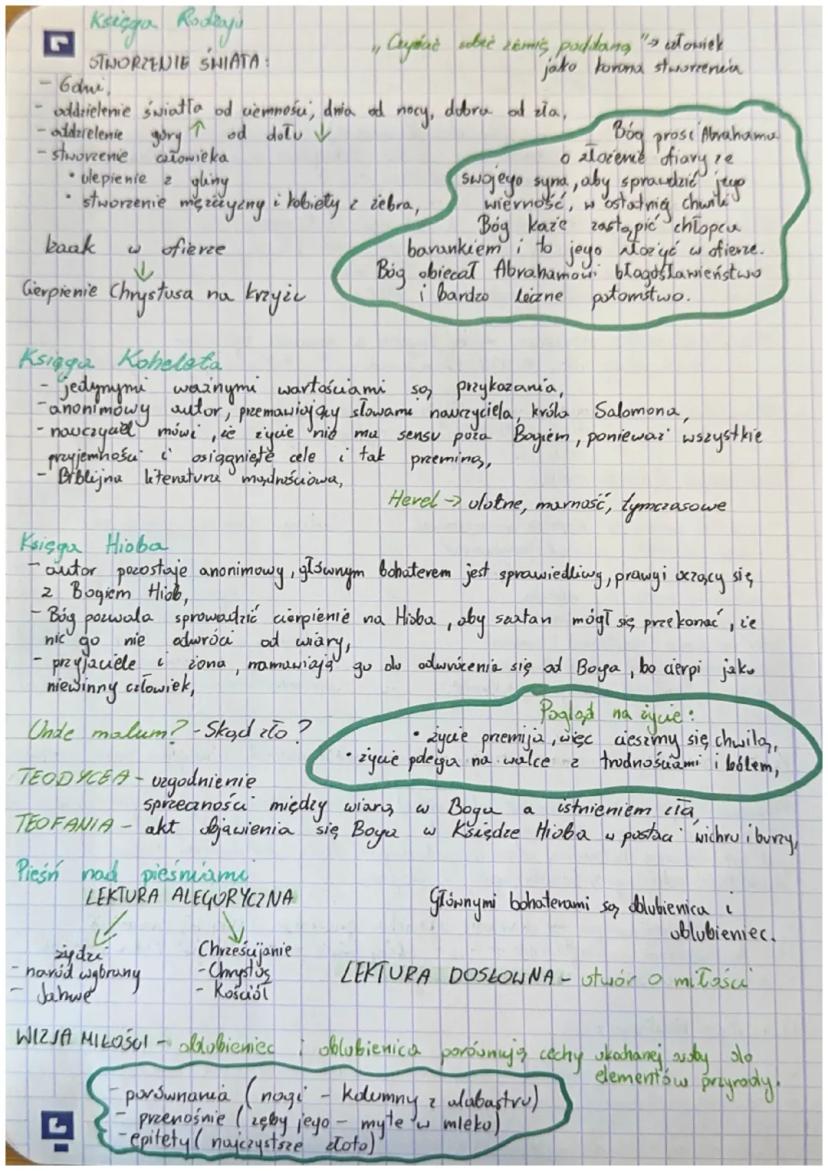 Księga Rodzaju
„Czyńcie sobie ziemię poddaną" → człowiek
jako korona stworzenia
STWORZENIE ŚWIATA:
- 6 dni,
- oddzielenie światła od ciemności, dnia od nocy, dobra od zła,
- oddzielenie góry ↑ od dołu ↓
- stworzenie człowieka
• ulepienie z gliny
• stworzenie mężczyzny i kobiety z żebra,
Bóg prosi Abrahama
o złożenie ofiary ze
swojego syna, aby sprawdzić jego
wierność, w ostatniej chwili
Bóg każe zastąpić chłopca
barankiem i to jego złożyć w ofierze.
Bóg obiecał Abrahamowi błogosławieństwo
i bardzo liczne potomstwo.
Izaak w ofierze
↓
Cierpienie Chrystusa na krzyżu
Księga Koheleta
- jedynymi ważnymi wartościami są przykazania,
- anonimowy autor, przemawiający słowami nauczyciela, króla Salomona,
- nauczyciel mówi, że życie nie ma sensu poza Bogiem, ponieważ wszystkie
przyjemności i osiągnięte cele i tak przeminą,
- Biblijna literatura mądrościowa,
Hevel → ulotne, marność, tymczasowe
Księga Hioba
- autor pozostaje anonimowy, głównym bohaterem jest sprawiedliwy, prawy i liczący się
z Bogiem Hiob,
- Bóg pozwala sprowadzić cierpienie na Hioba, aby szatan mógł się przekonać, że
nic go nie odwróci od wiary,
- przyjaciele i żona, namawiają go do odwrócenia się od Boga, bo cierpi jako
niewinny człowiek,
Unde malum? - Skąd zło?
Pogląd na życie:
• życie przemija, więc cieszmy się chwilą,
• życie polega na walce z trudnościami i bólem,
TEODYCEA - uzgodnienie
sprzeczności między wiarą w Boga a istnieniem zła,
TEOFANIA - akt objawienia się Boga w Księdze Hioba w postaci wichru i burzy,
Pieśń nad pieśniami
LEKTURA ALEGORYCZNA
żydzi
- naród wybrany
- Jahwe
Chrześcijanie
- Chrystus
- Kościół
Głównymi bohaterami są oblubienica i
oblubieniec.
LEKTURA DOSŁOWNA - utwór o miłości
WIZJA MIŁOŚCI - oblubieniec i oblubienica porównują cechy ukochanej osoby do
elementów przyrody.
- porównania (nogi - kolumny z alabastru)
- przenośnie (zęby jego - myte w mleko)
- epitety (najczystsze złoto)